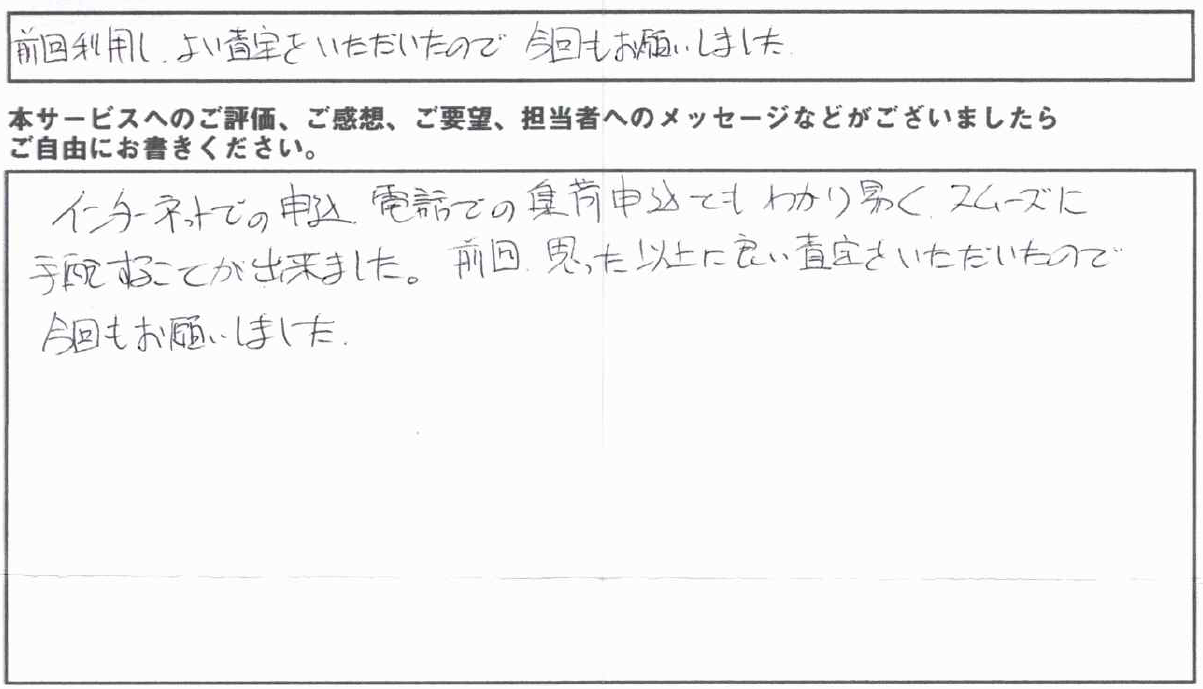 前回利用し、よい査定をいただいたので 今回もお願いしました.
本サービスへのご評価、ご感想、ご要望、担当者へのメッセージなどがございましたら
ご自由にお書きください。
インターネットでの申込、電話での集荷申込てもわかり易く、スムーズに
手配することが出来ました。前回、思った以上に良い査定をいただいたので
今回もお願いしました.